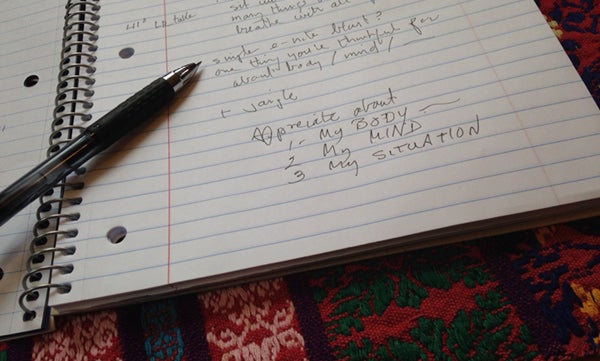 sit
many things
breathe with all
simple e-note blast?
one thing you're thankful for
about body / mind /
+ jungle
Appreciate about
1- My BODY
2 My MIND
3 My SITUATION